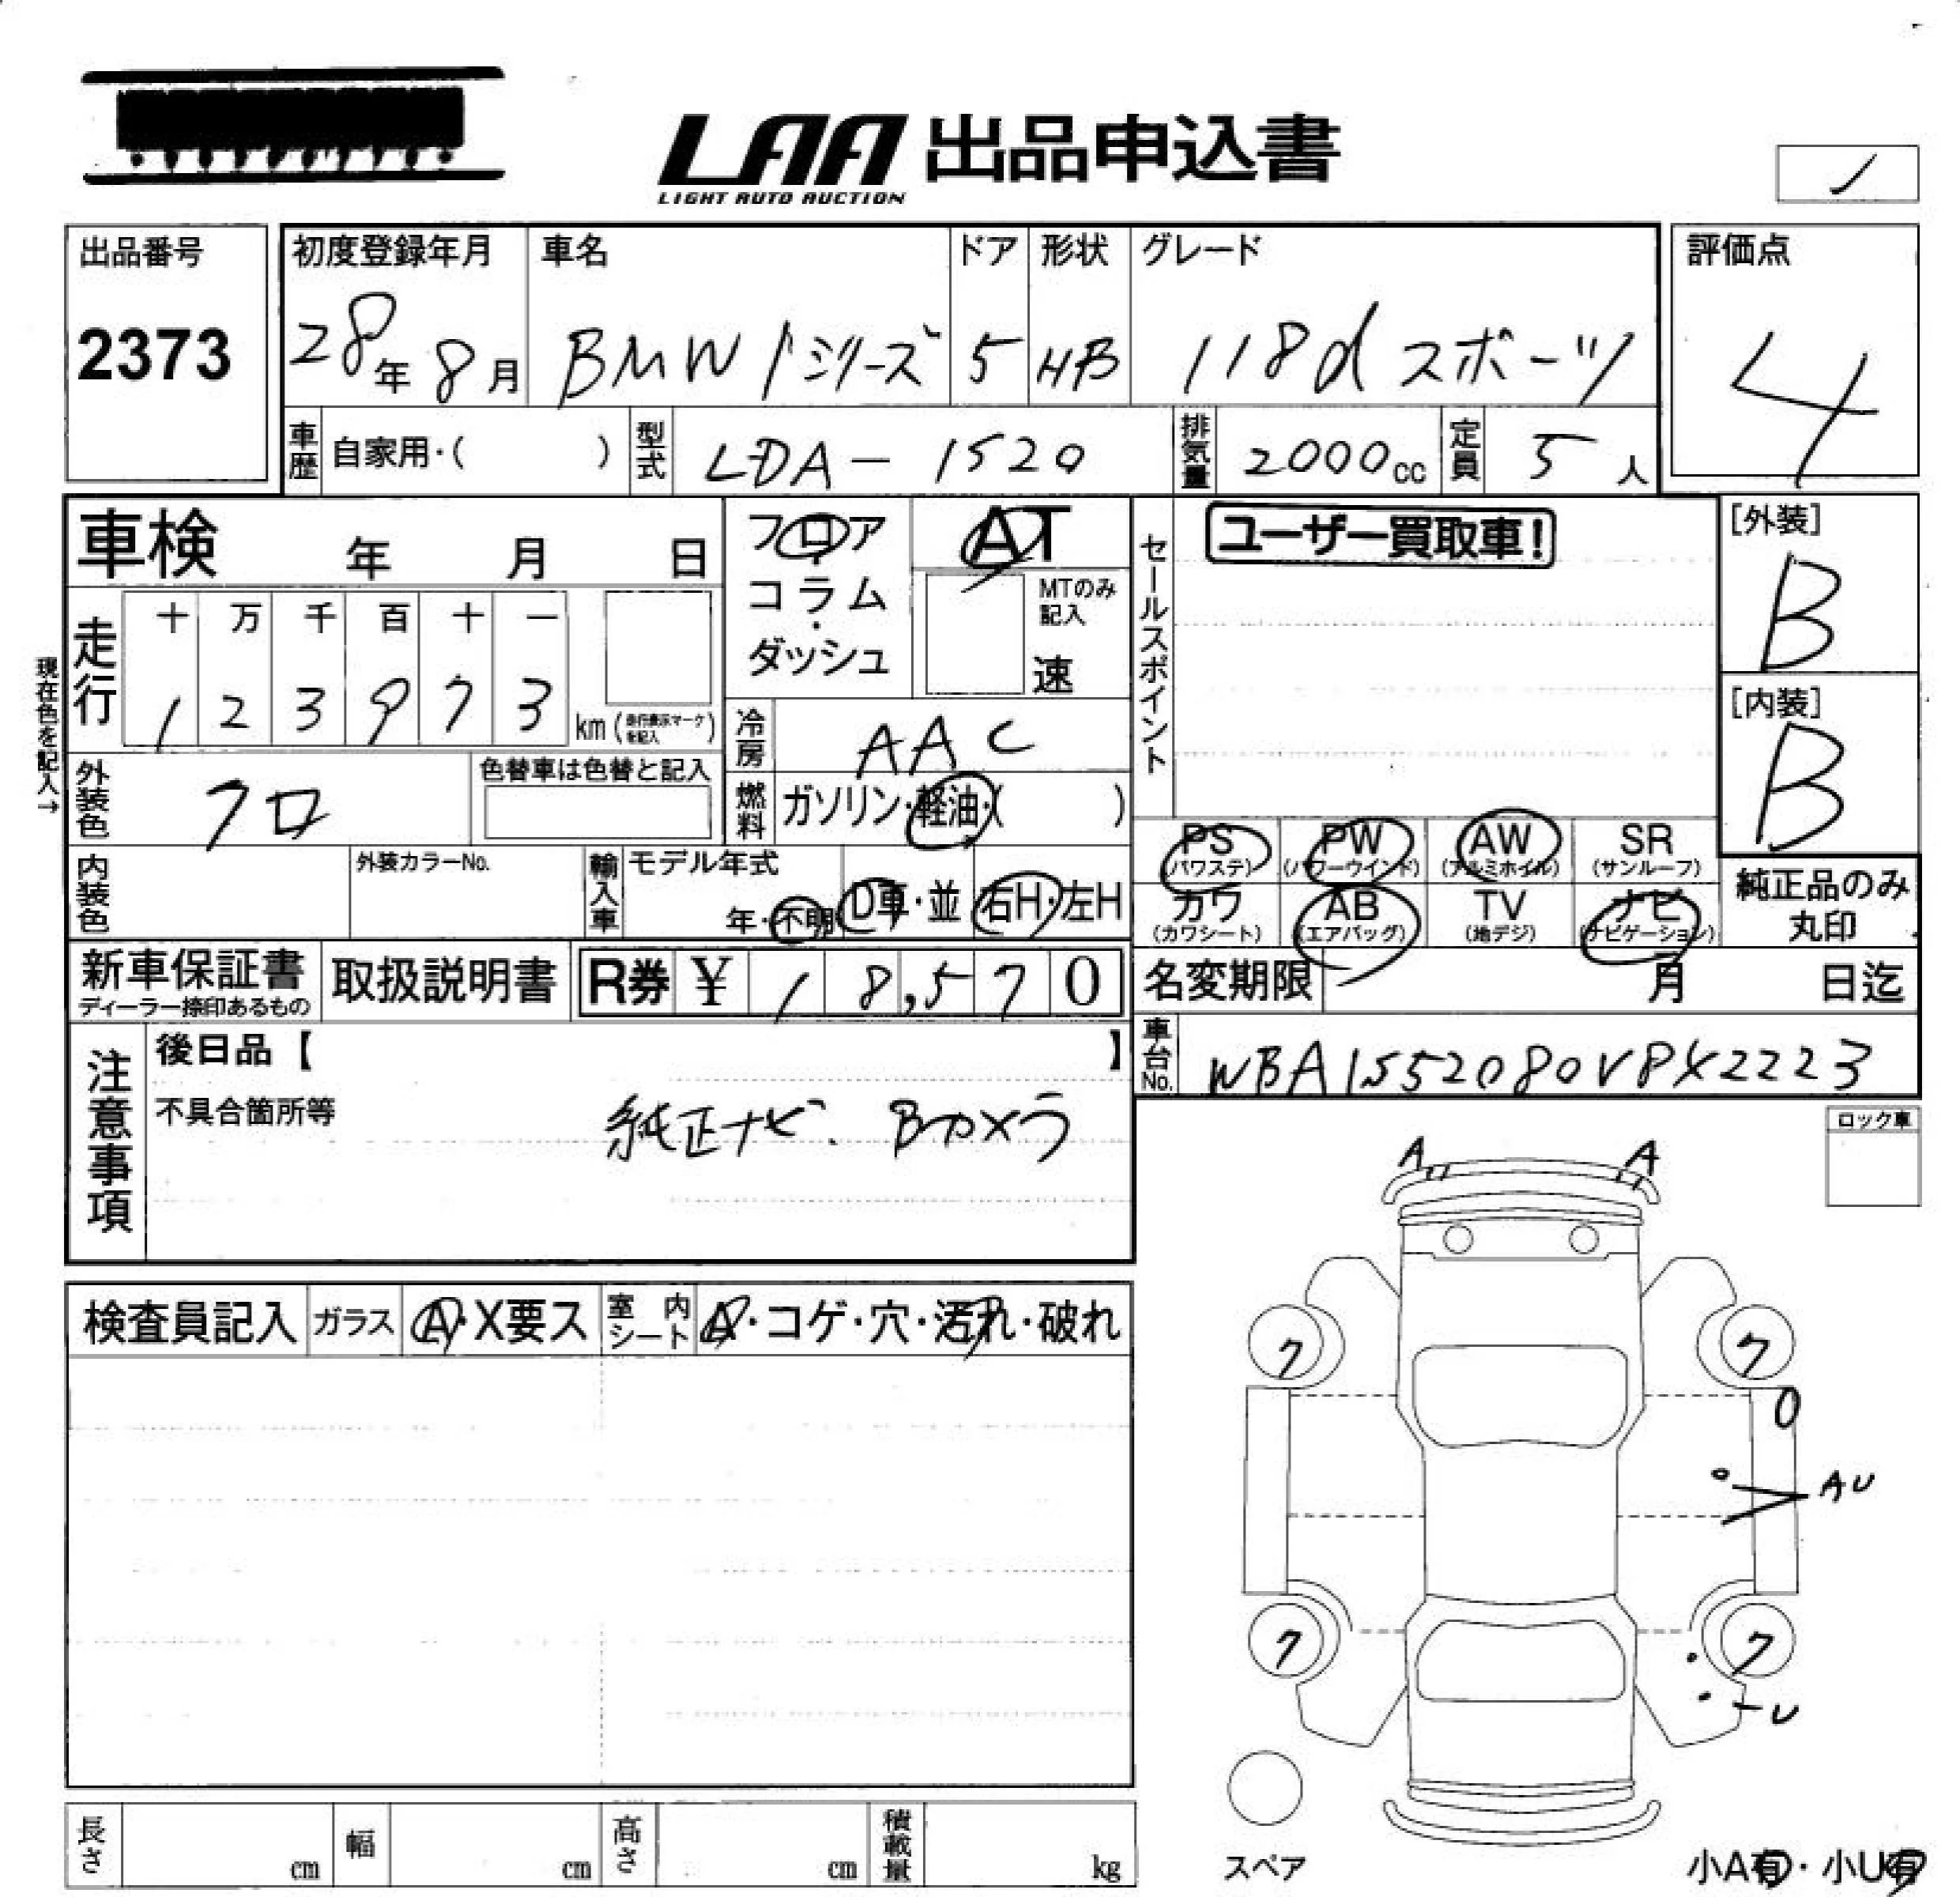 LAA 出品申込書
LIGHT AUTO AUCTION
1
出品番号
2373
初度登録年月
28年 8月
車名
BMW 1シリーズ
ドア
5
形状
HB
グレード
118d スポーツ
評価点
4
車歴 自家用・( )
型式 LDA-1S20
排気量 2000cc
定員 5人
車検 年 月 日
フロア
コラム・
ダッシュ
AT
MTのみ
記入
速
セールスポイント
ユーザー買取車!
[外装]
B
[内装]
B
現在色を記入→
走行
十 万 千 百 十 一
1 2 3 9 7 3
km (走行表示マークを記入)
冷房 AAC
外装色 クロ
色替車は色替と記入
燃料 ガソリン・軽油・( )
PS
(パワステ)
PW
(パワーウインド)
AW
(アルミホイル)
SR
(サンルーフ)
内装色
外装カラーNo.
輸入車
モデル年式
年・不明
D車・並
右H・左H
カワ
(カワシート)
AB
(エアバッグ)
TV
(地デジ)
ナビ
(ナビゲーション)
純正品のみ
丸印
新車保証書
ディーラー捺印あるもの
取扱説明書
R券 ¥ 18,570
名変期限 月 日迄
車台No. WBA1S52080VPX2223
注意事項
後日品【 】
不具合箇所等
純正ナビ. Bカメラ
ロック車
検査員記入
ガラス A・X要ス
室内シート A・コゲ・穴・汚れ・破れ
A A
ク ク
O
AU
ク ク
U
スペア
小A有・小U有
長さ cm
幅 cm
高さ cm
積載量 kg